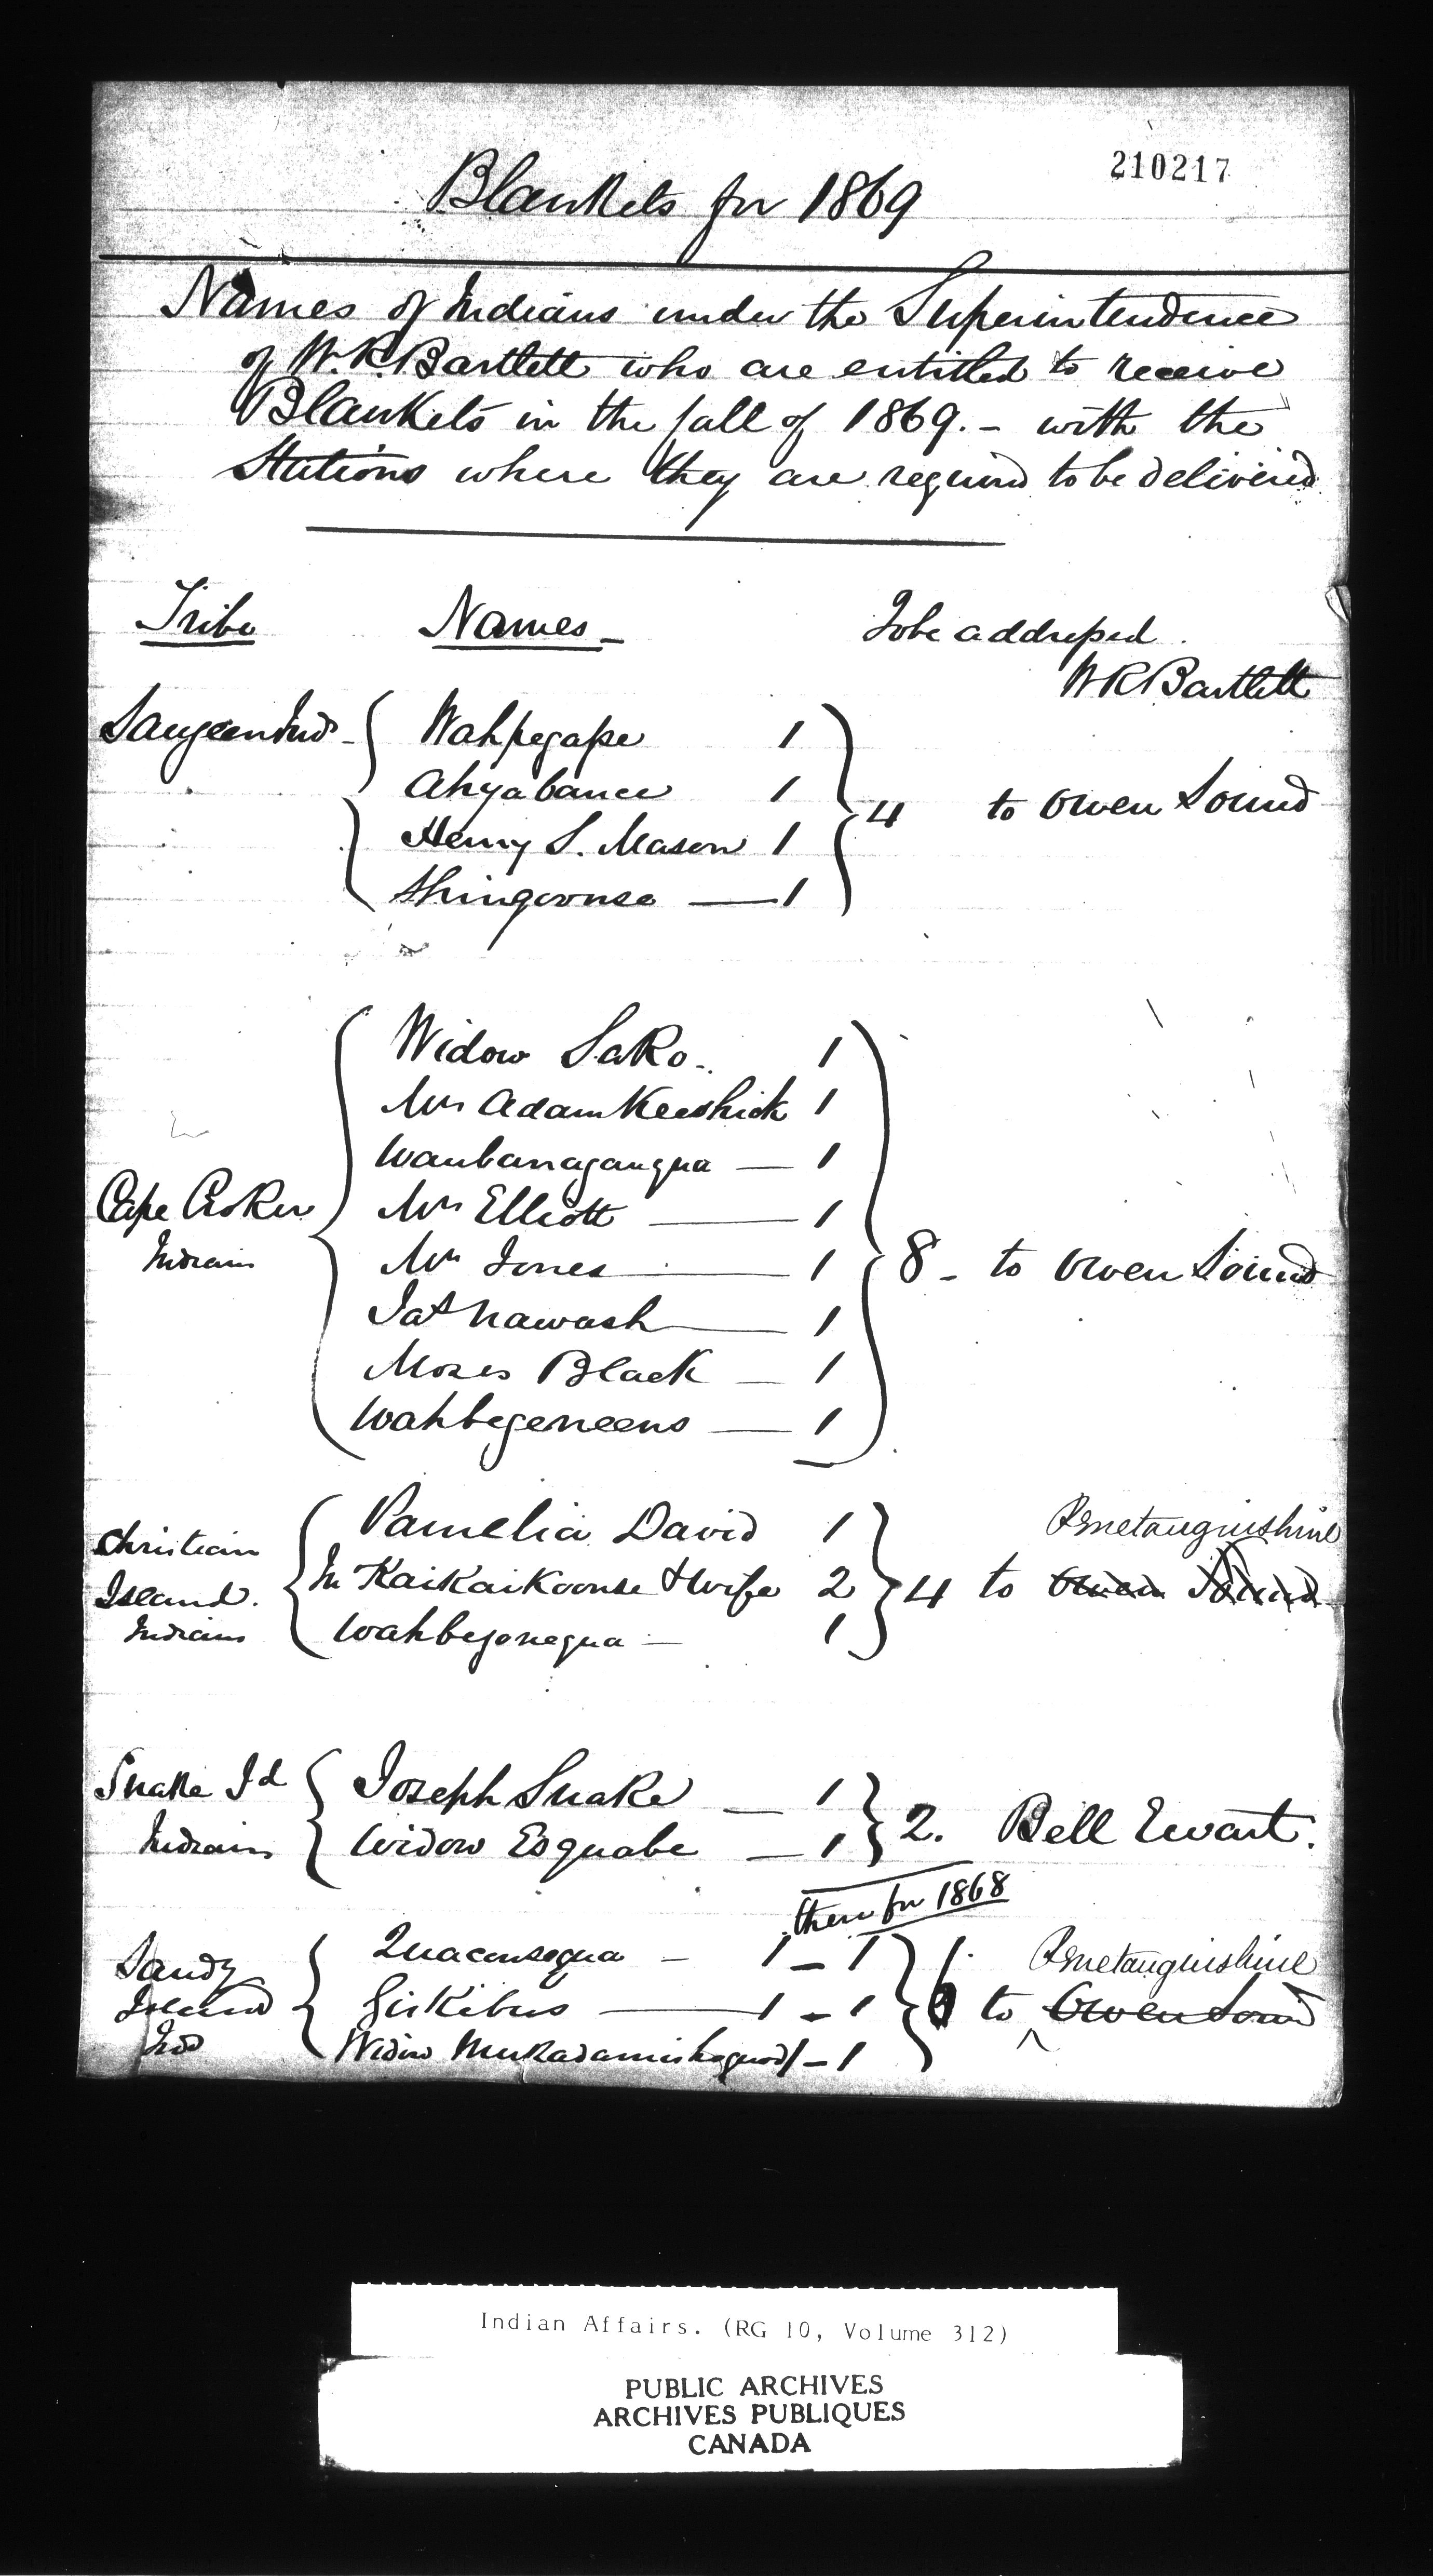 210217
Blankets for 1869
Names of Indians under the Superintendence
of W. R. Bartlett who are entitled to receive
Blankets in the fall of 1869. - with the
Stations where they are required to be delivered
Tribe Names - To be addressed
W R Bartlett
Saugeen Inds - Wahpegapse 1
Ahyabance 1
4 to Owen Sound
Henry S. Mason 1
Shingoonse — 1
Widow Sako - 1
Mrs Adam Keeshick 1
Waubanagauqua — 1
Cape Croker Mrs Elliott — 1
Indians Mrs Jones — 1 8 - to Owen Sound
Jas Nawash — 1
Moses Black — 1
Wahbegeneens — 1
Pamelia David 1 Penetanguishine
Christian
Island. Kaikaikoonse & wife 2 4 to Owen Sound
Indians Wahbegonequa — 1
Snake Id Joseph Snake — 1
2. Bell Ewart.
Indians Widow Esquabe — 1
them for 1868
Sandy Quacousequa - 1 - 1 Penetanguishine
Island Girkibus — 1 - 1 6 to Owen Sound
Ind Widow 1 - 1
Indian Affairs. (RG 10, Volume 312)
PUBLIC ARCHIVES
ARCHIVES PUBLIQUES
CANADA